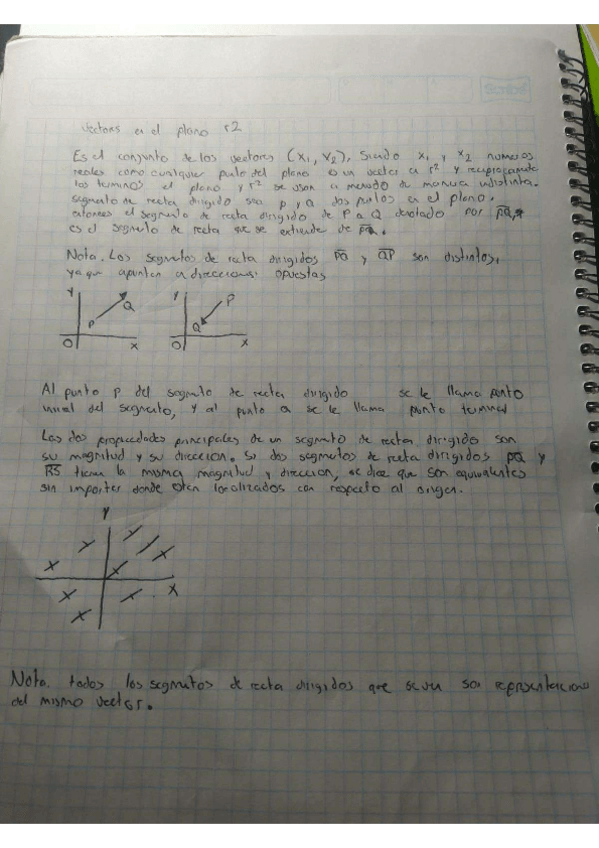 Vectores en el plano r2
Es el conjunto de los vectores (x1, x2), Siendo x1 y x2 numeros
reales como cualquier punto del plano o un vector en r2 y reciprocamente
los terminos el plano y r2 se usan a menudo de manera indistinta.
segmento de recta dirigido sea p y Q dos puntos en el plano.
entonces el segmento de recta dirigido de P a Q denotado por PQ,
es el segmento de recta que se extiende de PQ.
Nota. Los segmetos de recta dirigidos PQ y QP son distintos,
ya que apunten a direcciones opuestas
Y Y
Q P
P Q
O X O X
Al punto p del segmeto de recta dirigido se le llama punto
inicial del segmento, y al punto Q se le llama punto terminal
Las dos propiedades principales de un segmeto de recta dirigido son
su magnitud y su direccion. Si dos segmetos de recta dirigidos PQ y
RS tienen la misma magnitud y direccion, se dice que son equivalentes
sin importar donde esten localizados con respecto al origen.
Y
X
Nota. todos los segmetos de recta dirigidos que se ven son representaciones
del mismo vector.